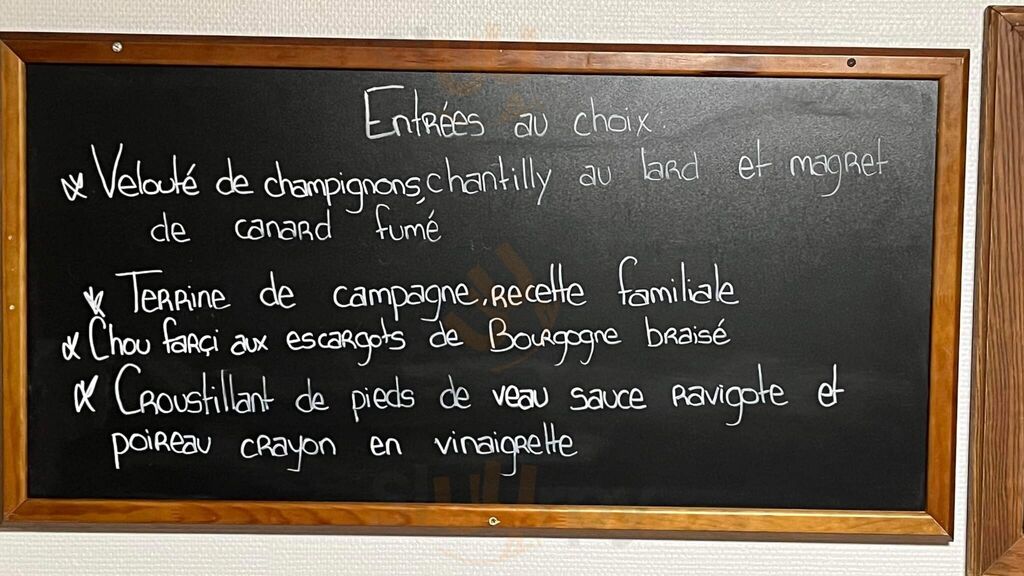 Entrées au choix.
Velouté de champignons, chantilly au lard et magret
de canard fumé
Terrine de campagne, recette familiale
Chou farçi aux escargots de Bourgogne braisé
Croustillant de pieds de veau sauce ravigote et
poireau crayon en vinaigrette